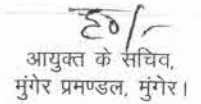 ह०/-
आयुक्त के सचिव,
मुंगेर प्रमण्डल, मुंगेर।